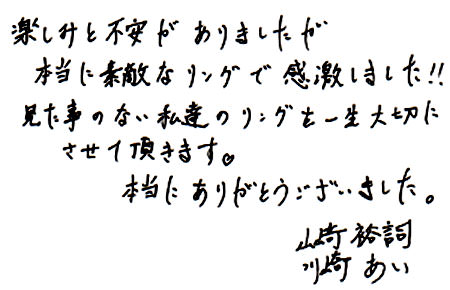 楽しみと不安がありましたが
本当に素敵なリングで感激しました!!
見た事のない私達のリングを一生大切に
させて頂きます♡
本当にありがとうございました。
山崎 裕詞
川崎 あい